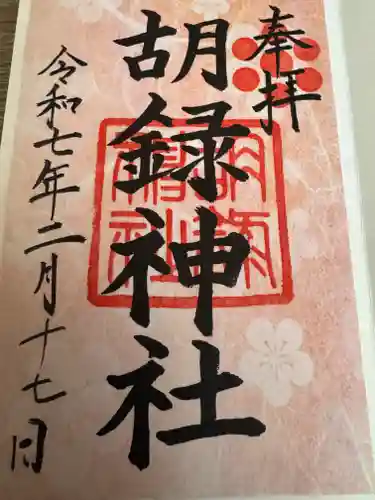 奉拝
胡録神社
令和七年二月十七日